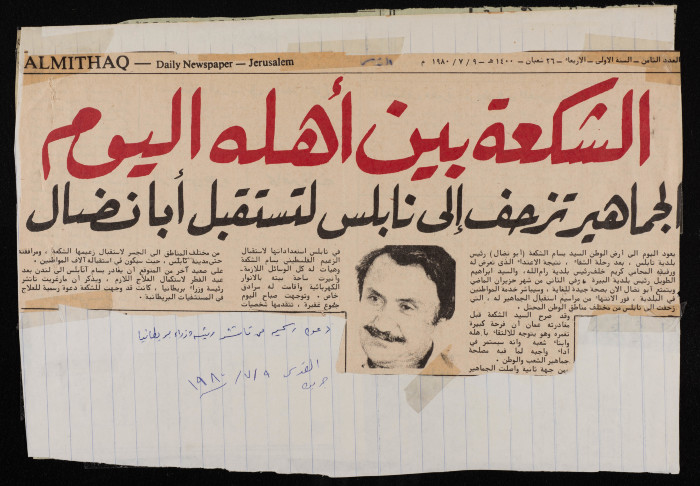 ALMITHAQ — Daily Newspaper — Jerusalem
العدد الثامن – السنة الاولى – الأربعاء ٢٦ شعبان – ١٤٠٠ هـ – ٩ / ٧ / ١٩٨٠ م
الشكعة بين أهله اليوم
الجماهير تزحف إلى نابلس لتستقبل أبا نضال
يعود اليوم الى ارض الوطن السيد بسام الشكعة (أبو نضال) رئيس
بلدية نابلس ، بعد رحلة الشفاء ، نتيجة الاعتداء الذى تعرض له
ورفيقه المحامي كريم خلف رئيس بلدية رام الله، والسيد ابراهيم
الطويل رئيس بلدية البيرة في شهر حزيران الماضي
ويتمتع أبو نضال الآن بصحة جيدة للغاية ، وسيباشر خدمة المواطنين
في البلدية ، فور الانتهاء من مراسيم استقبال الجماهير له ، التي
زحفت الى نابلس من مختلف مناطق الوطن المحتل .
وقد صرح السيد الشكعة قبل
مغادرته عمان ان فرحة كبيرة
تغمره وهو يتوجه للالتقاء بأهله
وابناء شعبه وانه سيستمر في
أداء واجبه لما فيه مصلحة
جماهير الشعب والوطن .
من جهة ثانية واصلت الجماهير
في نابلس استعداداتها لاستقبال
الزعيم الفلسطيني بسام الشكعة
وهيأت له كل الوسائل اللازمة.
وأنيرت ساحة بيته بالانوار
الكهربائية واقامت له سرادق
خاص . وتوجهت صباح اليوم
جموع غفيرة ، تتقدمها شخصيات
من مختلف المناطق الى الجسر لاستقبال زعيمها الشكعة ، ومرافقته
حتى مدينة نابلس ، حيث سيكون في استقباله آلاف المواطنين .
على صعيد آخر من المتوقع ان يغادر بسام الى لندن بعد
عيد الفطر لاستكمال العلاج اللازم . ويذكر أن مارغريت تاتشر
رئيسة وزراء بريطانيا ، كانت قد وجهت للشكعة دعوة رسمية للعلاج
في المستشفيات البريطانية .
دعوة من تاتشر رئيسة وزراء بريطانيا
القدس
٩/٧/١٩٨٠